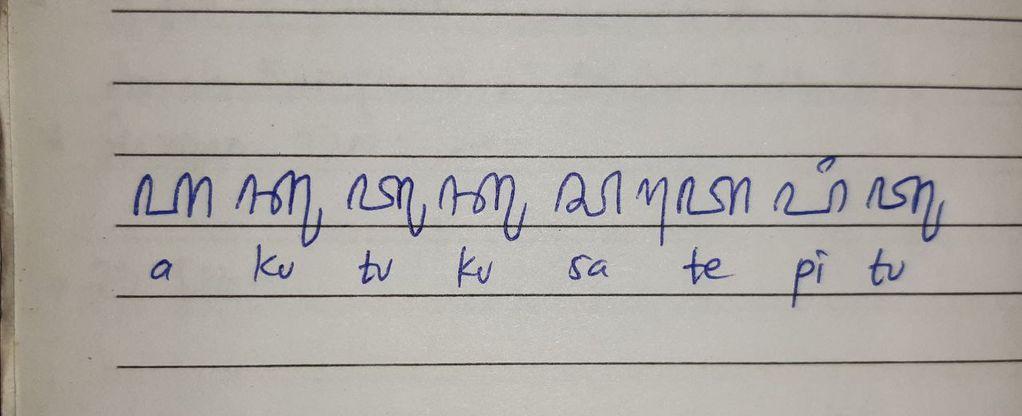 ꦲꦏꦸꦠꦸꦏꦸꦱꦠꦺꦥꦶꦠꦸ
a ku tu ku sa te pi tu